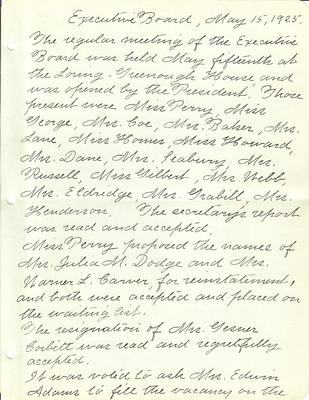 Executive Board, May 15, 1925.
The regular meeting of the Executive
Board was held May fifteenth at
the Loring-Greenough House and
was opened by the President. Those
present were Miss Perry, Miss
George, Mrs. Coe, Mrs. Baker, Mrs.
Lane, Miss Homer, Miss Howard,
Mrs. Dane, Mrs. Seabury, Mrs.
Russell, Miss Gilbert, Mrs. Webb,
Mrs. Eldridge, Mrs. Grabill, Mrs.
Henderson. The secretary's report
was read and accepted.
Miss Perry proposed the names of
Mrs. Julia M. Dodge and Mrs.
Warner L. Carver, for reinstatement,
and both were accepted and placed on
the waiting list.
The resignation of Mrs.
Corbitt was read and regretfully
accepted.
It was voted to ask Mrs. Edwin
Adams to fill the vacancy on the